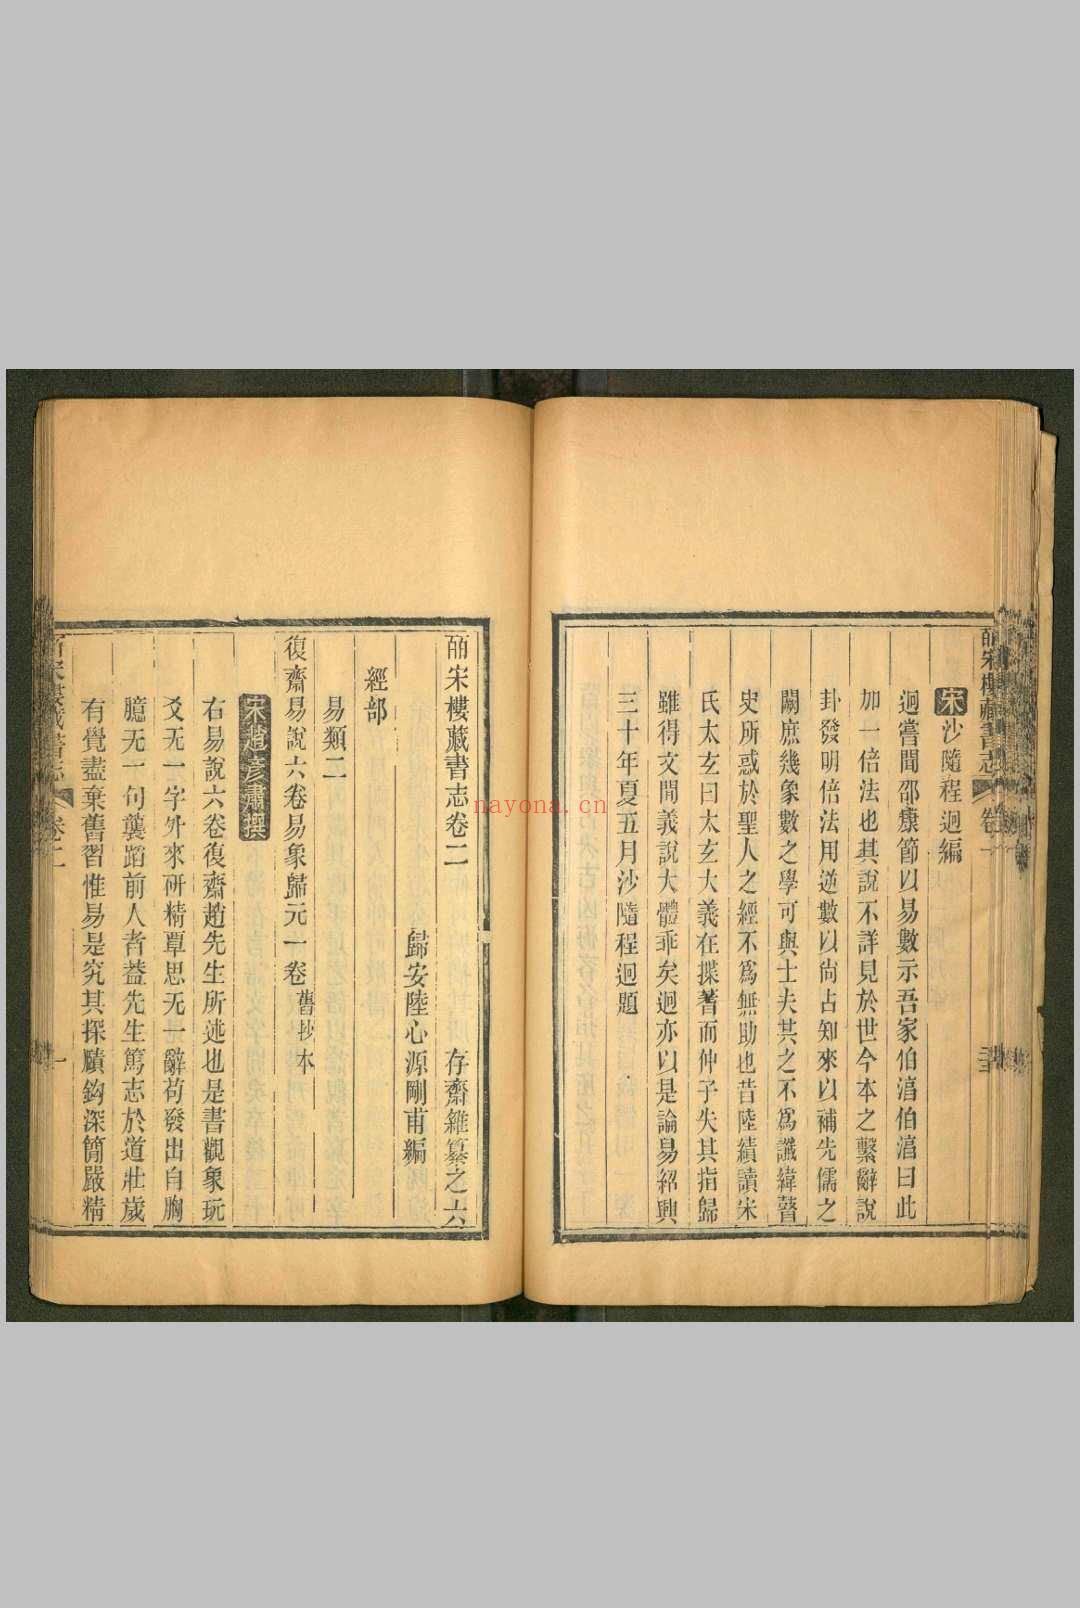 皕宋樓藏書志
卷一
宋沙隨程迥編
迥嘗聞邵康節以易數示吾家伯淳伯淳曰此
加一倍法也其說不詳見於世今本之繫辭說
卦發明倍法用逆數以尙占知來以補先儒之
闕庶幾象數之學可與士夫共之不爲讖緯瞽
史所惑於聖人之經不爲無助也昔陸績讀宋
氏太玄曰太玄大義在揲蓍而仲子失其指歸
雖得文間義說大體乖矣迥亦以是論易紹興
三十年夏五月沙隨程迥題
皕宋樓藏書志卷二
存齋雜纂之六
歸安陸心源剛甫編
經部
易類二
復齋易說六卷易象歸元一卷舊抄本
宋趙彥肅撰
右易說六卷復齋趙先生所述也是書觀象玩
爻无一字外來研精覃思无一辭苟發出自胸
臆无一句襲蹈前人者葢先生篤志於道壯歲
有覺盡棄舊習惟易是究其探賾鈎深簡嚴精
皕宋樓藏書志
卷二
一
nayona.cn